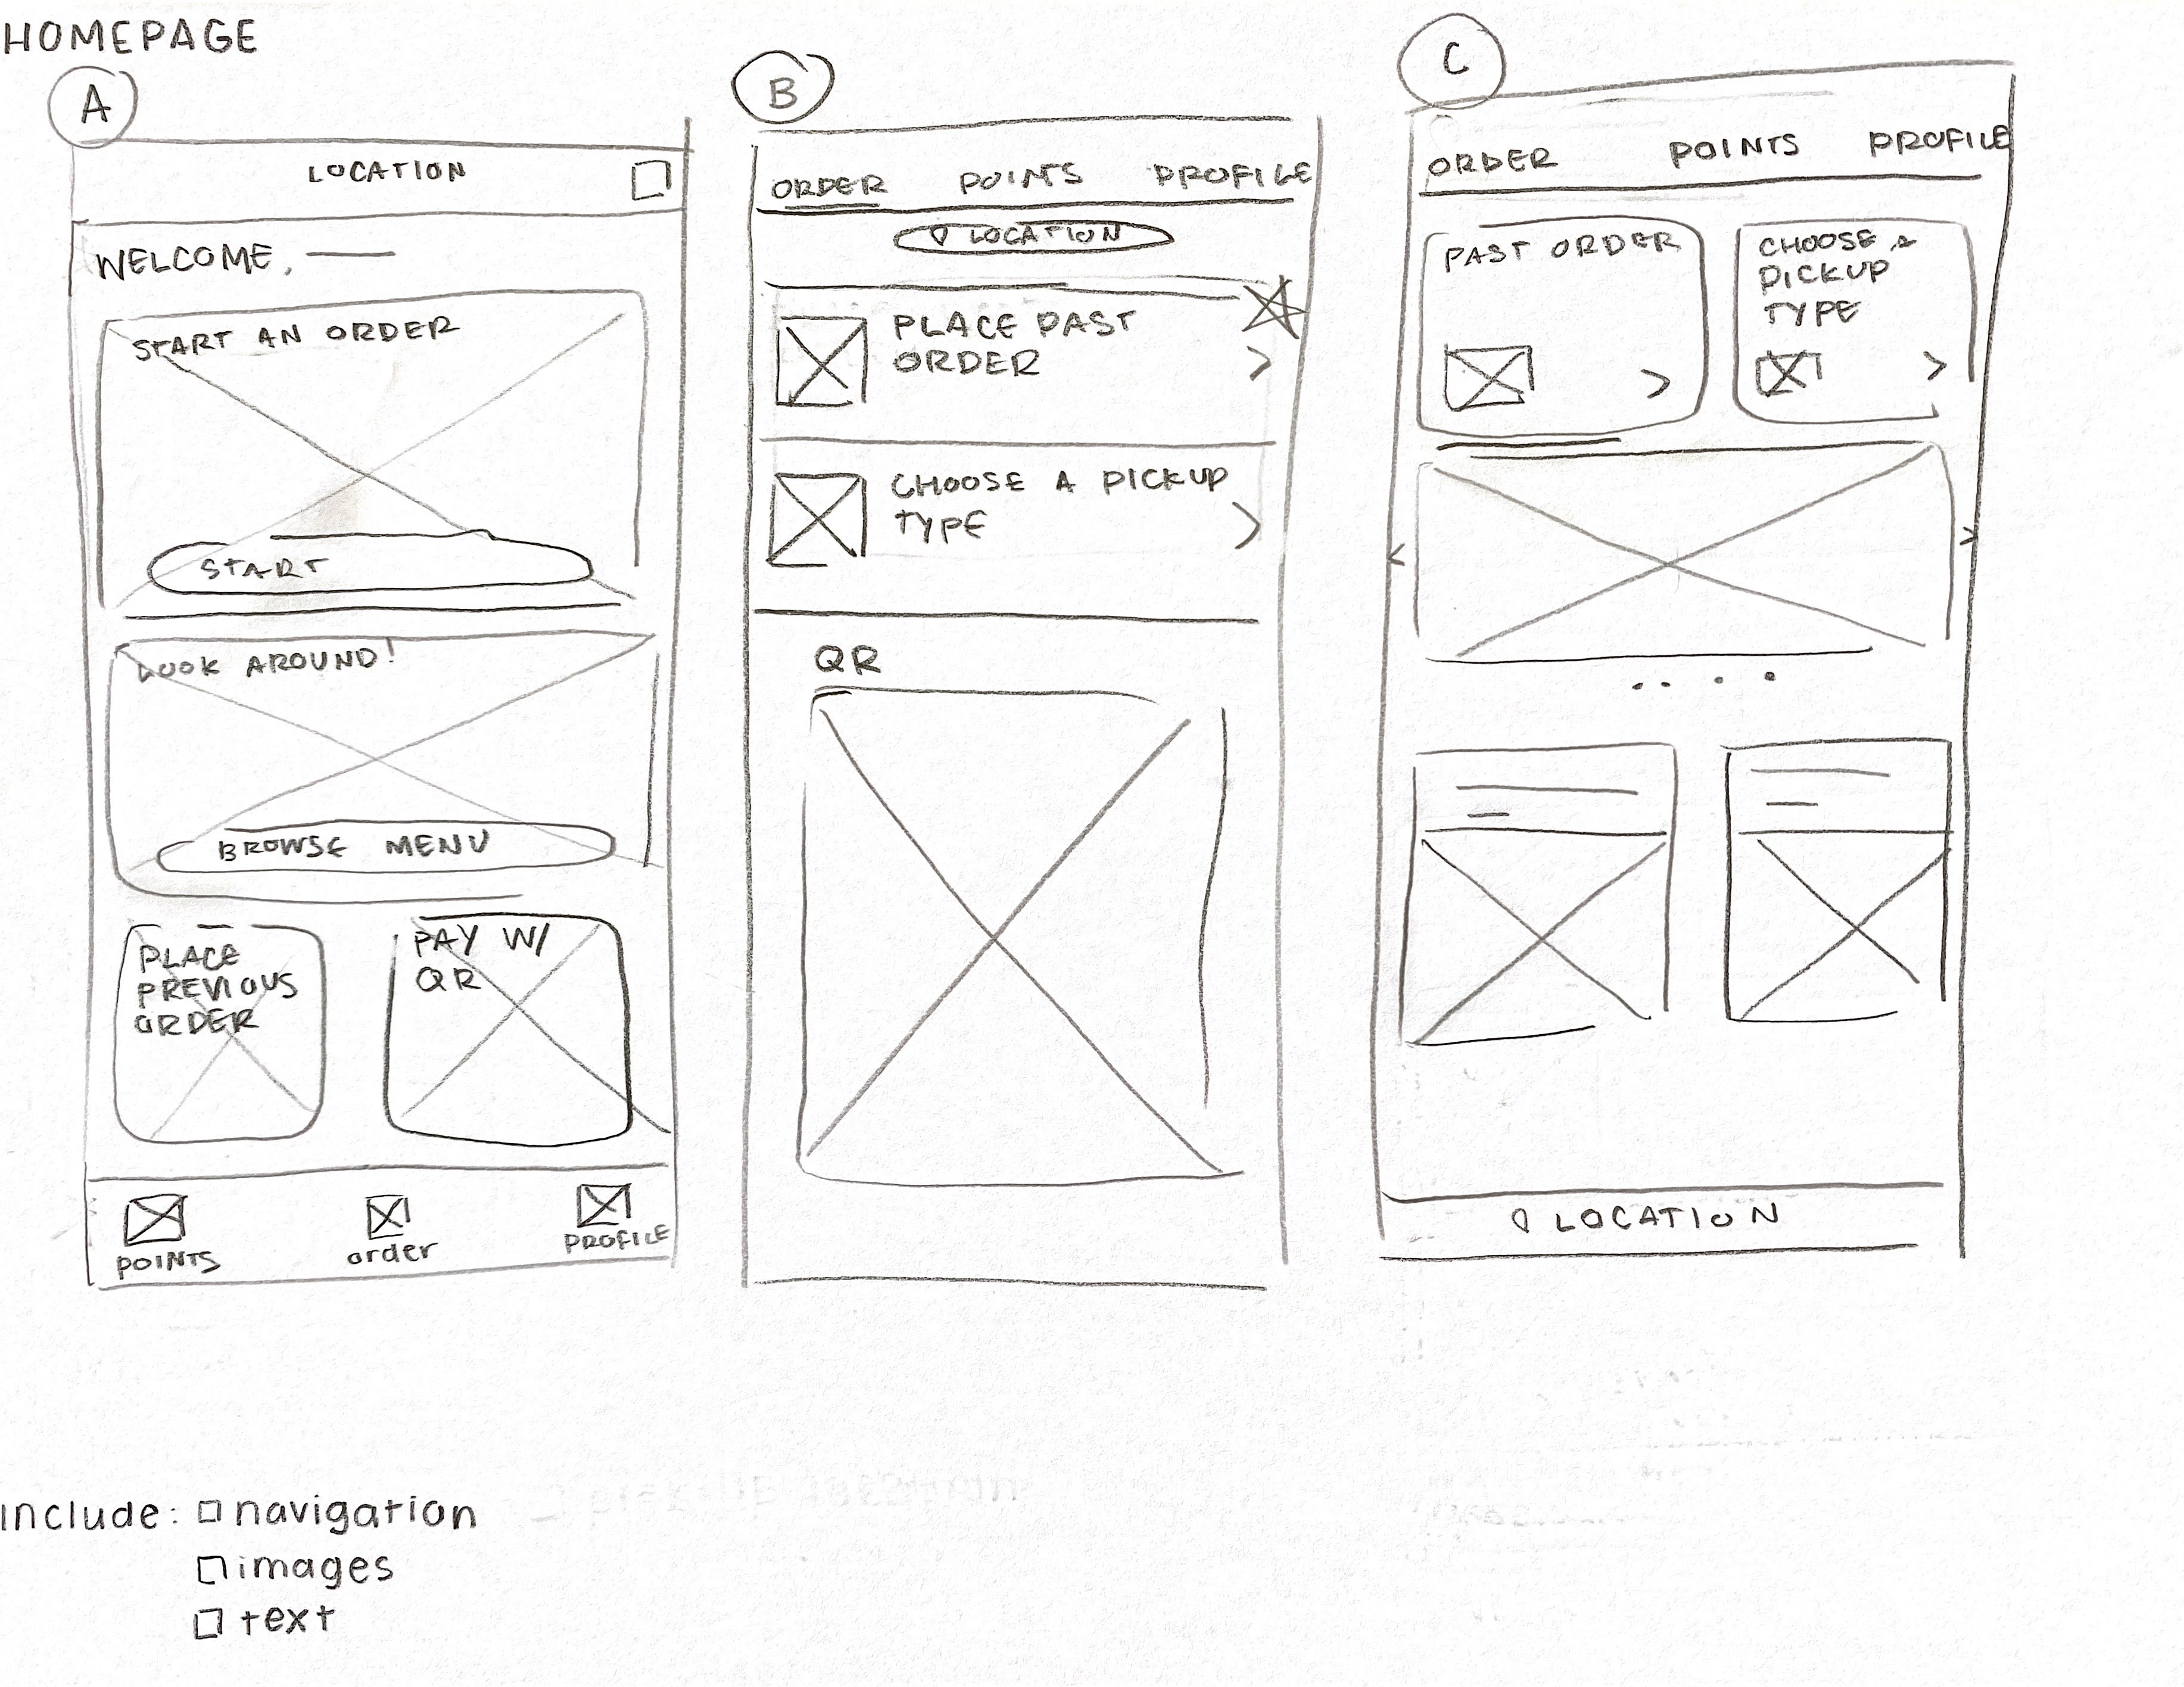 HOMEPAGE
A
LOCATION
WELCOME,
START AN ORDER
START
LOOK AROUND!
BROWSE MENU
PLACE
PREVIOUS
ORDER
PAY W/
QR
POINTS
order
PROFILE
B
ORDER POINTS PROFILE
LOCATION
PLACE PAST
ORDER
CHOOSE A PICKUP
TYPE
QR
C
ORDER POINTS PROFILE
PAST ORDER
CHOOSE A
PICKUP
TYPE
LOCATION
include: navigation
images
text